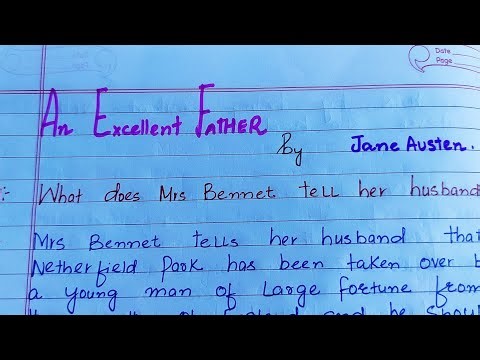 Date
Page
An Excellent FATHER
By Jane Austen.
:- What does Mrs Bennet tell her husband
Mrs Bennet tells her husband that
Netherfield Park has been taken over b
a young man of Large fortune from
and he shoul